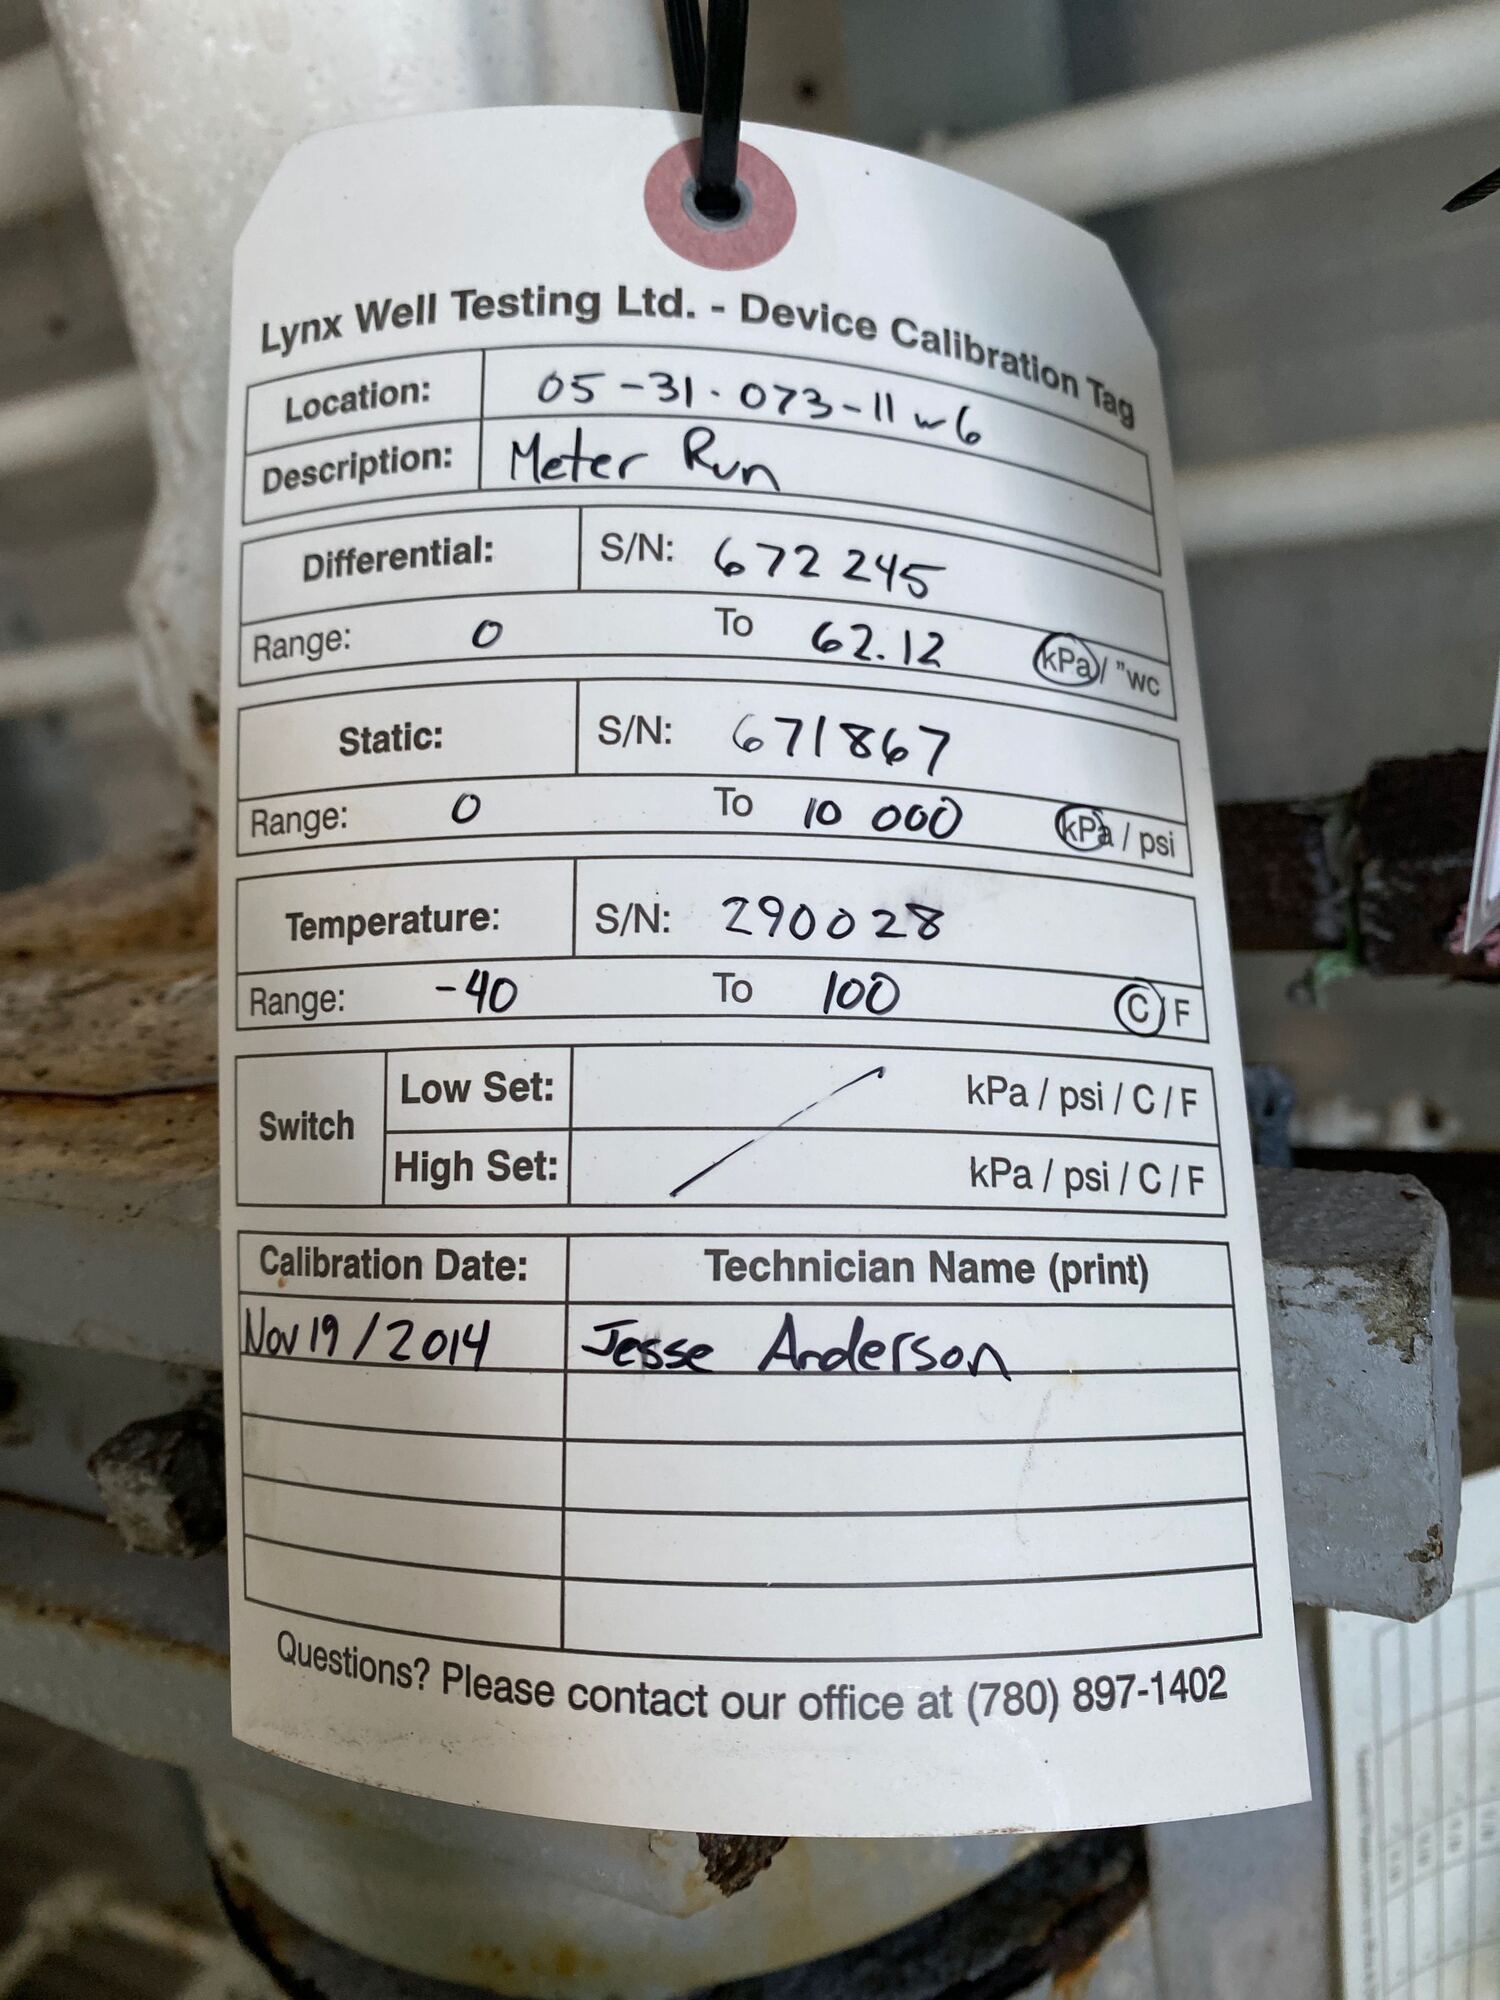 Lynx Well Testing Ltd. - Device Calibration Tag
Location: 05-31-073-11 w6
Description: Meter Run
Differential: S/N: 672245
Range: 0 To 62.12 kPa / "wc
Static: S/N: 671867
Range: 0 To 10 000 kPa / psi
Temperature: S/N: 290028
Range: -40 To 100 C / F
Switch
Low Set: kPa / psi / C / F
High Set: kPa / psi / C / F
Calibration Date: Technician Name (print)
Nov 19 / 2014 Jesse Anderson
Questions? Please contact our office at (780) 897-1402